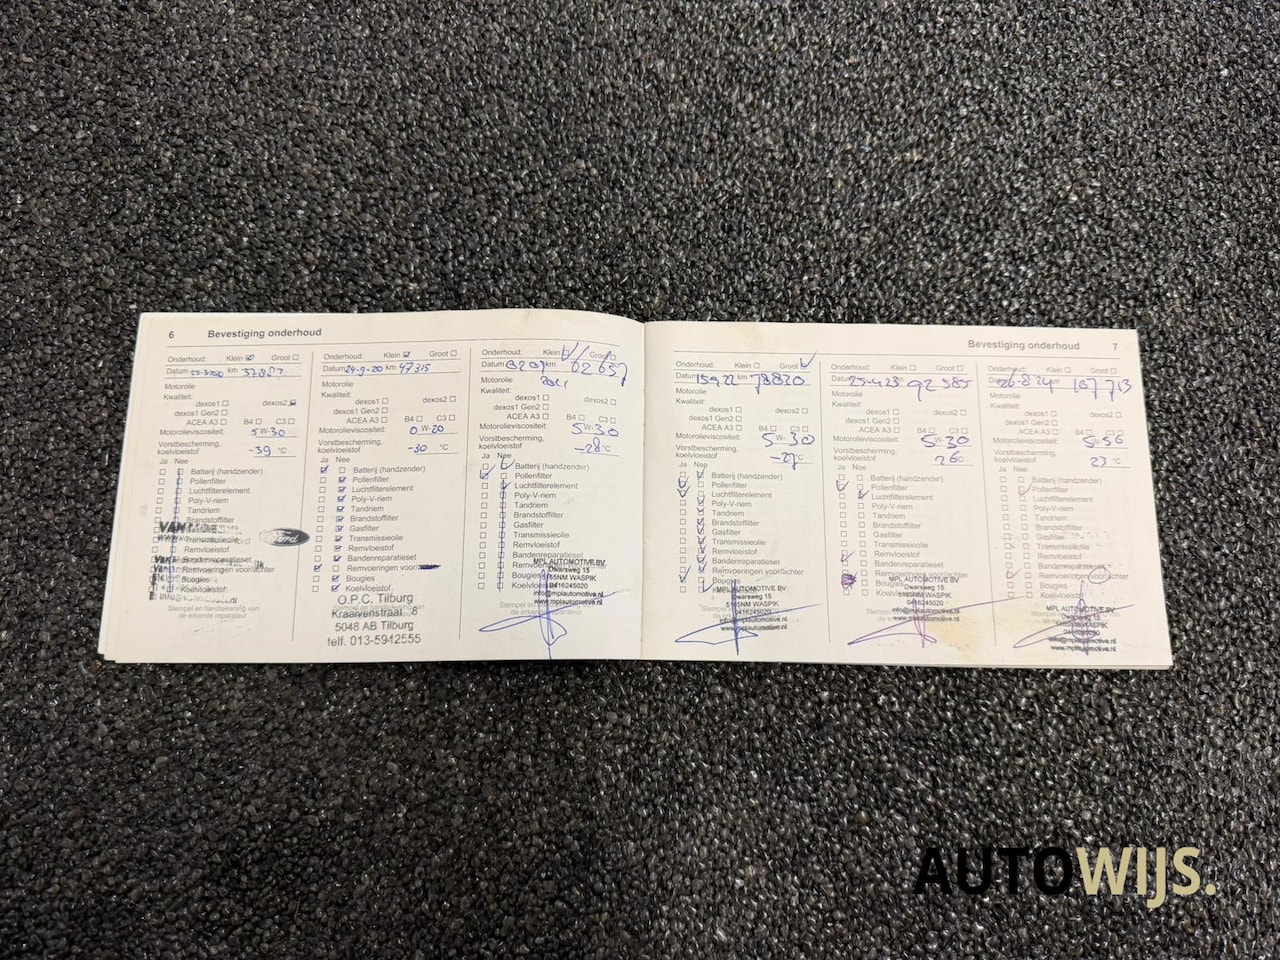 6 Bevestiging onderhoud
Onderhoud: Klein Groot
Datum km
Motorolie
Kwaliteit:
dexos1 dexos2
dexos1 Gen2
ACEA A3 B4 C3
Motorolieviscositeit: 5 W-30
Vorstbescherming, koelvloeistof -39 °C
Ja Nee
Batterij (handzender)
Pollenfilter
Luchtfilterelement
Poly-V-riem
Tandriem
Brandstoffilter
Transmissieolie
Remvloeistof
Bandenreparatieset
Remvoeringen voor/achter
Bougies
Koelvloeistof
Ford
Stempel en handtekening van
de erkende reparateur
Onderhoud: Klein Groot
Datum 24-9-20 km 47315
dexos1 dexos2
dexos1 Gen2
ACEA A3 B4 C3
0 W-20
-30 °C
Batterij (handzender)
Pollenfilter
Luchtfilterelement
Poly-V-riem
Tandriem
Brandstoffilter
Gasfilter
Transmissieolie
Remvloeistof
Bandenreparatieset
Remvoeringen voor/
Bougies
Koelvloeistof
O.P.C. Tilburg
Kraaivenstraat 6
5048 AB Tilburg
telf. 013-5942555
Onderhoud: Klein Groot
Datum km 62657
Motorolie
Kwaliteit:
dexos1 dexos2
dexos1 Gen2
ACEA A3 B4 C3
Motorolieviscositeit: 5 W-30
Vorstbescherming,
koelvloeistof -28 °C
Ja Nee
Batterij (handzender)
Pollenfilter
Luchtfilterelement
Poly-V-riem
Tandriem
Brandstoffilter
Gasfilter
Transmissieolie
Remvloeistof
Bandenreparatieset
Remvoeringen voor/achter
Bougies
Koelvloeistof
MPL AUTOMOTIVE BV.
Dwarsweg 15
5165NM WASPIK
0416245020
info@mplautomotive.nl
www.mplautomotive.nl
Bevestiging onderhoud 7
Onderhoud: Klein Groot
Datum 15 9 22 km 78820
Motorolie
Kwaliteit:
dexos1 dexos2
dexos1 Gen2
ACEA A3 B4 C3
Motorolieviscositeit: 5 W-30
Vorstbescherming,
koelvloeistof -27 °C
Ja Nee
Batterij (handzender)
Pollenfilter
Luchtfilterelement
Poly-V-riem
Tandriem
Brandstoffilter
Gasfilter
Transmissieolie
Remvloeistof
Bandenreparatieset
Remvoeringen voor/achter
Bougies
MPL AUTOMOTIVE BV.
Dwarsweg 15
5165NM WASPIK
0416245020
info@mplautomotive.nl
www.mplautomotive.nl
Onderhoud: Klein Groot
Datum 25-4-23 92585
Motorolie
Kwaliteit:
dexos1 dexos2
dexos1 Gen2
ACEA A3 B4 C3
Motorolieviscositeit: 5 W-30
Vorstbescherming,
koelvloeistof 26 °C
Ja Nee
Batterij (handzender)
Pollenfilter
Luchtfilterelement
Poly-V-riem
Tandriem
Brandstoffilter
Gasfilter
Transmissieolie
Remvloeistof
Bandenreparatieset
Remvoeringen voor/achter
MPL AUTOMOTIVE BV.
Dwarsweg 15
5165NM WASPIK
0416245020
info@mplautomotive.nl
www.mplautomotive.nl
Onderhoud: Klein Groot
Datum 26-8-24 107713
Motorolie
Kwaliteit:
dexos1 dexos2
dexos1 Gen2
ACEA A3 B4 C3
Motorolieviscositeit:
Vorstbescherming,
koelvloeistof 23 °C
Ja Nee
Batterij (handzender)
Pollenfilter
Luchtfilterelement
Poly-V-riem
Tandriem
Brandstoffilter
Gasfilter
Transmissieolie
Remvloeistof
Bandenreparatieset
Remvoeringen voor/achter
Bougies
Koelvloeistof
MPL AUTOMOTIVE BV.
Dwarsweg 15
5165NM WASPIK
info@mplautomotive.nl
www.mplautomotive.nl
AUTOWIJS.